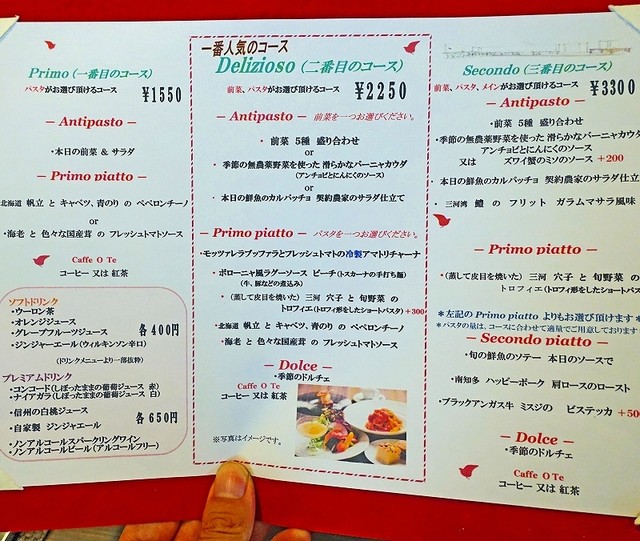 Primo（一番目のコース）
パスタがお選び頂けるコース ¥1550
― Antipasto ―
・本日の前菜 & サラダ
― Primo piatto ―
北海道 帆立 と キャベツ、青のり の ペペロンチーノ
or
・海老 と 色々な国産茸 の フレッシュトマトソース
Caffe O Te
コーヒー 又は 紅茶
ソフトドリンク
・ウーロン茶
・オレンジジュース
・グレープフルーツジュース
・ジンジャーエール（ウィルキンソン辛口）
各400円
（ドリンクメニューより一部抜粋）
プレミアムドリンク
・コンコード（しぼったままの葡萄ジュース 赤）
・ナイアガラ（しぼったままの葡萄ジュース 白）
・信州の白桃ジュース
・自家製 ジンジャエール
各650円
・ノンアルコールスパークリングワイン
・ノンアルコールビール（アルコールフリー）
一番人気のコース
Delizioso（二番目のコース）
前菜、パスタがお選び頂けるコース ¥2250
― Antipasto ― 前菜を一つお選びください。
・前菜 5種 盛り合わせ
or
・季節の無農薬野菜を使った 滑らかなバーニャカウダ
（アンチョビとにんにくのソース）
or
・本日の鮮魚のカルパッチョ 契約農家のサラダ仕立て
― Primo piatto ― パスタを一つお選びください。
・モッツァレラブッファラとフレッシュトマトの冷製アマトリチャーナ
・ボローニャ風ラグーソース ピーチ（トスカーナの手打ち麺）
（牛、豚などの煮込み）
・（蒸して皮目を焼いた）三河 穴子 と 旬野菜 の
トロフィエ（トロフィ形をしたショートパスタ）+300
・北海道 帆立 と キャベツ、青のり の ペペロンチーノ
・海老 と 色々な国産茸 の フレッシュトマトソース
― Dolce ―
・季節のドルチェ
Caffe O Te
コーヒー 又は 紅茶
※写真はイメージです。
Secondo（三番目のコース）
前菜、パスタ、メインがお選び頂けるコース ¥3300
― Antipasto ―
・前菜 5種 盛り合わせ
・季節の無農薬野菜を使った 滑らかなバーニャカウダ
アンチョビとにんにくのソース
又は ズワイ蟹のミソのソース +200
・本日の鮮魚のカルパッチョ 契約農家のサラダ仕立
・三河湾 鱧 の フリット ガラムマサラ風味
― Primo piatto ―
・（蒸して皮目を焼いた）三河 穴子 と 旬野菜 の
トロフィエ（トロフィ形をしたショートパス
＊左記の Primo piatto よりもお選び頂けます＊
＊パスタの量は、コースに合わせて適量でご用意しております
― Secondo piatto ―
・旬の鮮魚のソテー 本日のソースで
・南知多 ハッピーポーク 肩ロースのロースト
・ブラックアンガス牛 ミスジの ビステッカ +500
― Dolce ―
・季節のドルチェ
Caffe O Te
コーヒー 又は 紅茶